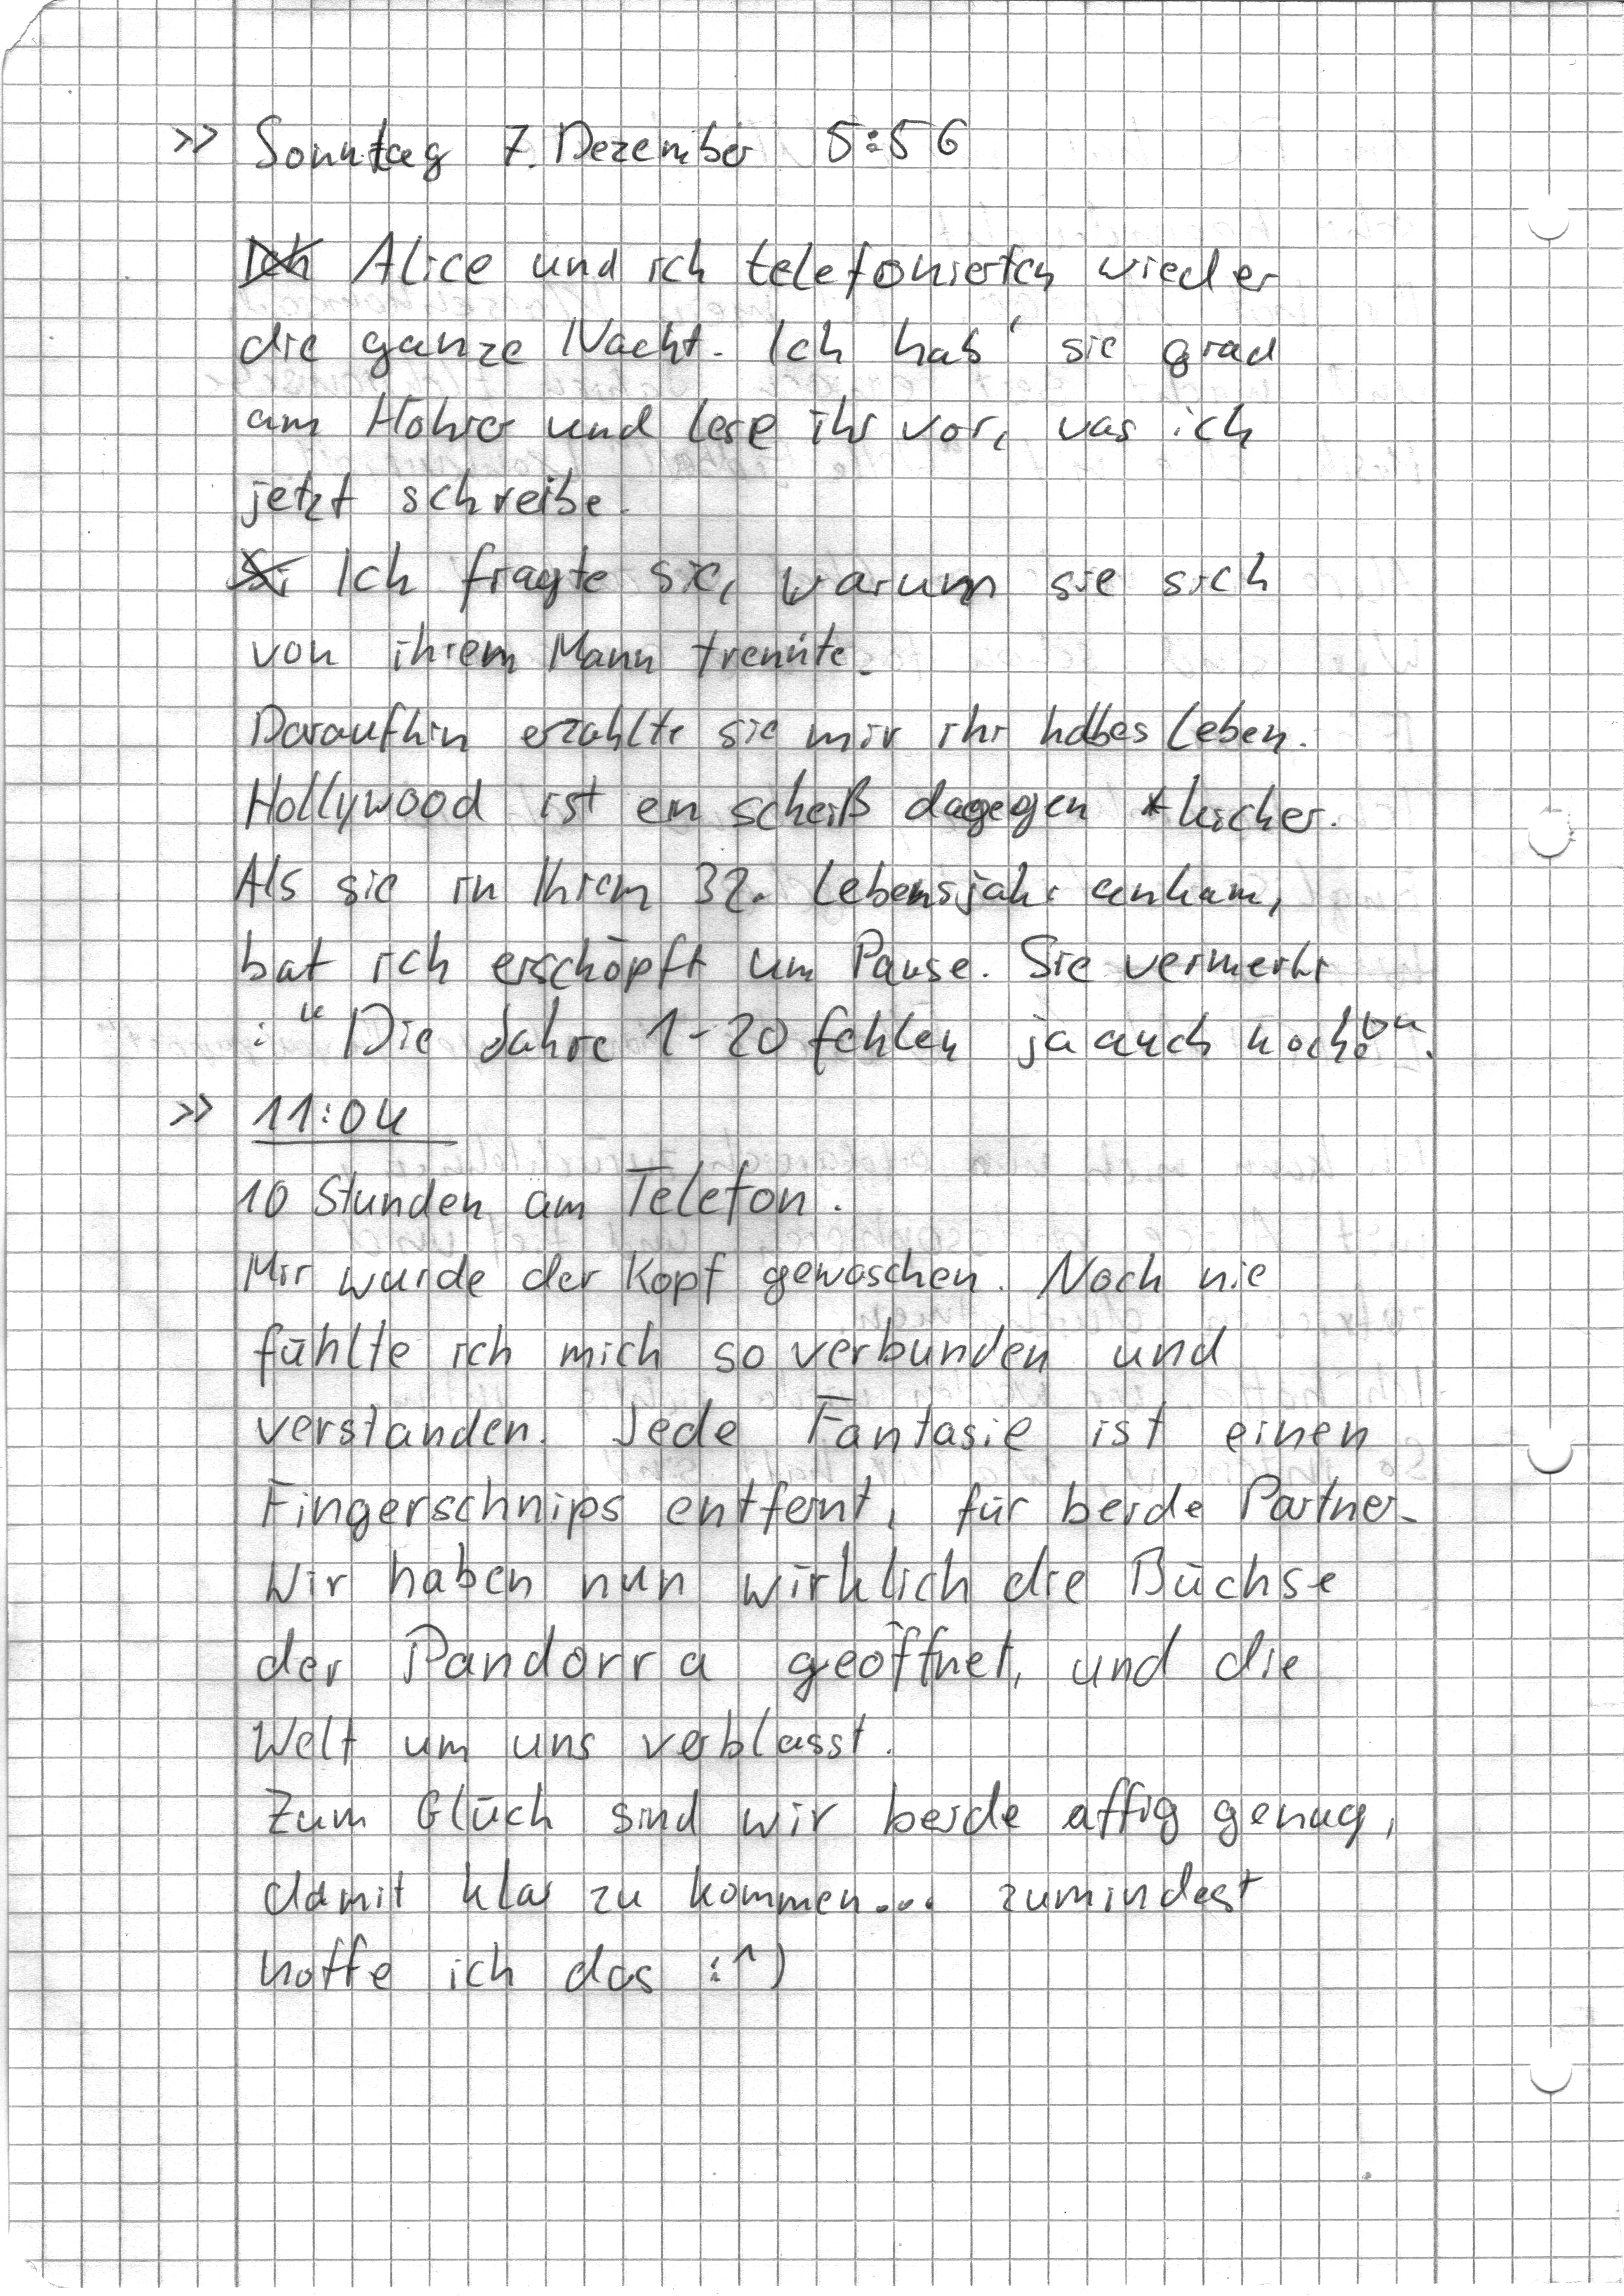 >> Sonntag 7. Dezember 5:56
Ich Alice und ich telefonierten wieder
die ganze Nacht. Ich hab' sie grad
am Hörer und lese ihr vor, was ich
jetzt schreibe.
Si Ich fragte sie, warum sie sich
von ihrem Mann trennte.
Daraufhin erzählte sie mir ihr halbes Leben.
Hollywood ist ein scheiß dagegen *kicher.
Als sie in Ihrem 32. Lebensjahr ankam,
bat ich erschöpft um Pause. Sie vermerkt
: "Die Jahre 1-20 fehlen ja auch noch!".
>> 11:04
10 Stunden am Telefon.
Mir wurde der Kopf gewaschen. Noch nie
fühlte ich mich so verbunden und
verstanden. Jede Fantasie ist einen
Fingerschnips entfernt, für beide Partner.
Wir haben nun wirklich die Büchse
der Pandorra geöffnet, und die
Welt um uns verblasst.
Zum Glück sind wir beide affig genug,
damit klar zu kommen... zumindest
hoffe ich das :^)